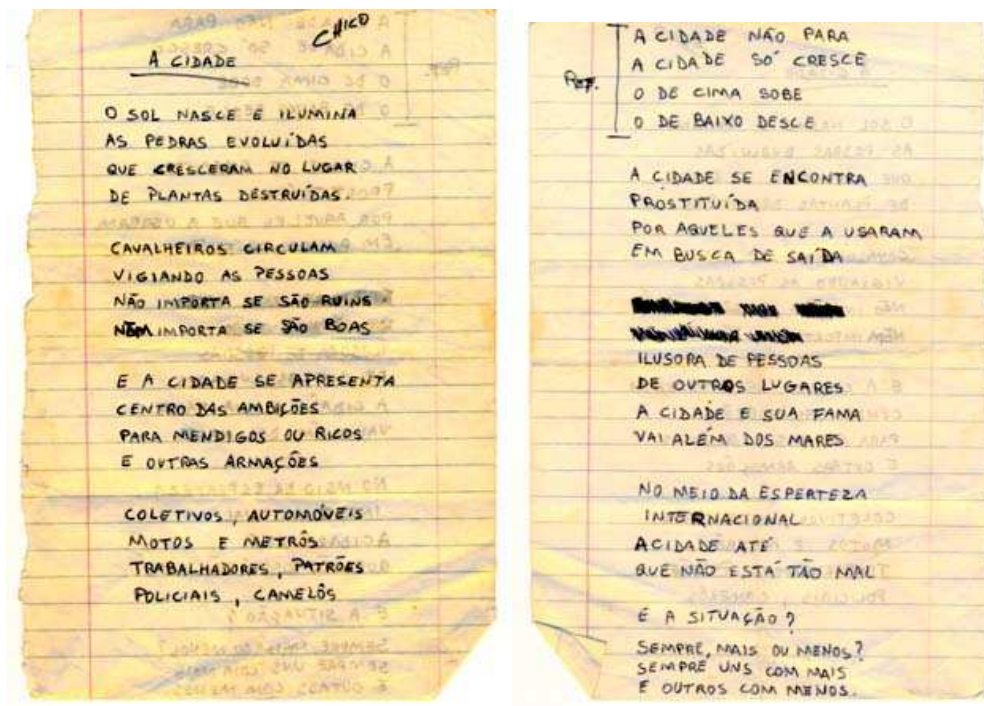 CHICO
A CIDADE
O SOL NASCE E ILUMINA
AS PEDRAS EVOLUÍDAS
QUE CRESCERAM NO LUGAR
DE PLANTAS DESTRUÍDAS.
CAVALHEIROS CIRCULAM
VIGIANDO AS PESSOAS
NÃO IMPORTA SE SÃO RUINS
NEM IMPORTA SE SÃO BOAS
E A CIDADE SE APRESENTA
CENTRO DAS AMBIÇÕES
PARA MENDIGOS OU RICOS
E OUTRAS ARMAÇÕES
COLETIVOS, AUTOMÓVEIS
MOTOS E METRÔS
TRABALHADORES, PATRÕES
POLICIAIS, CAMELÔS
A CIDADE NÃO PARA
A CIDADE SÓ CRESCE
O DE CIMA SOBE
O DE BAIXO DESCE
A CIDADE SE ENCONTRA
PROSTITUÍDA
POR AQUELES QUE A USARAM
EM BUSCA DE SAÍDA
ILUSORA DE PESSOAS
DE OUTROS LUGARES
A CIDADE E SUA FAMA
VAI ALÉM DOS MARES
NO MEIO DA ESPERTEZA
INTERNACIONAL
A CIDADE ATÉ
QUE NÃO ESTÁ TÃO MAL
E A SITUAÇÃO?
SEMPRE, MAIS OU MENOS?
SEMPRE UNS COM MAIS
E OUTROS COM MENOS.